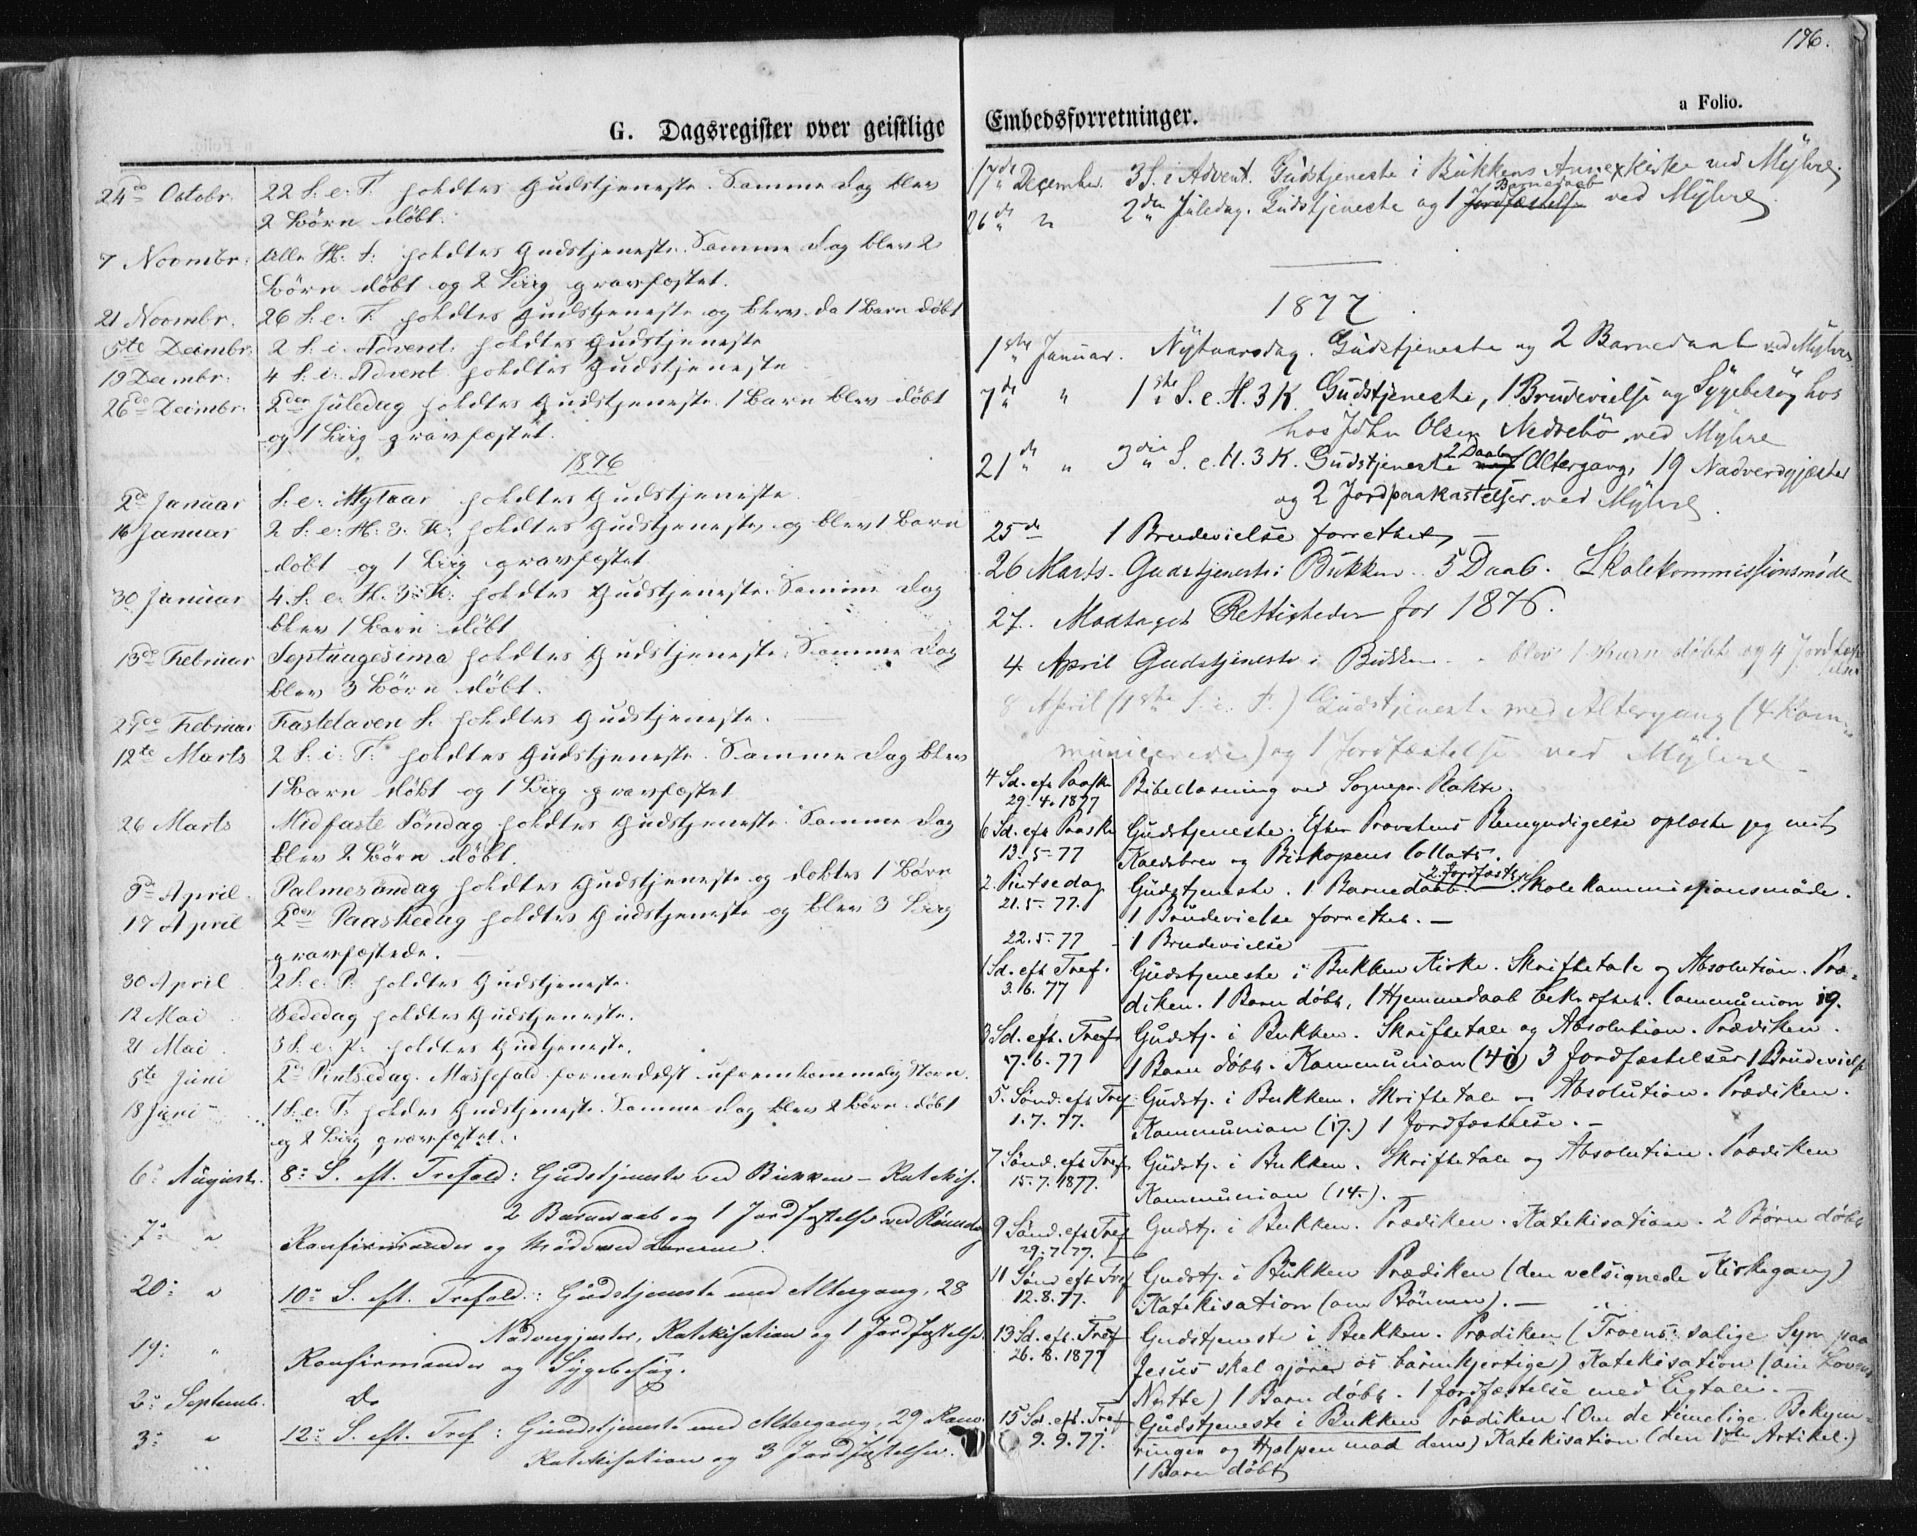 G. Dagsregister over geistlige
24de Octobr. 22 S. e. T. holdtes Gudstjeneste. Samme Dag blev
2 Børn døbt.
7 Novmbr. Alle H. S. holdtes Gudstjeneste. Samme Dag blev 2
Børn døbt og 2 Liig gravfæstet.
21 Novmbr. 26 S. e. T. holdtes Gudstjeneste og blev da 1 Barn døbt
5te Decmbr. 2 S. i. Advent. holdtes Gudstjeneste
19 Decmbr. 4 S. i. Advent holdtes Gudstjeneste.
26de Decmbr. 2den Juledag holdtes Gudstjeneste. 1 Barn blev døbt
og 1 Liig gravfæstet.
1876
2de Januar S. e. Nytaar holdtes Gudstjeneste.
16 Januar 2 S. e. H. 3. K. holdtes Gudstjeneste og blev 1 Barn
døbt og 1 Liig gravfæstet
30 Januar 4 S. e. H. 3. K. holdtes Gudstjeneste. Samme Dag
blev 1 Barn døbt
13de Februar Septuagesima holdtes Gudstjeneste. Samme Dag
blev 3 Børn døbt.
27de Februar Fastelaven S. holdtes Gudstjeneste.
12te Marts 2 S. i. F. holdtes Gudstjeneste. Samme Dag blev
1 Barn døbt og 1 Liig gravfæstet
26 Marts Midfaste Søndag holdtes Gudstjeneste. Samme Dag
blev 2 Børn døbt.
9de April. Palmesøndag holdtes Gudstjeneste og døbtes 1 Børn
17 April 2den Paaskedag holdtes Gudstjeneste og blev 3 Liig
gravfæstede.
30 April 2 S. e. P. holdtes Gudstjeneste.
12 Mai Bededag holdtes Gudstjeneste.
21 Mai 5 S. e. P. holdtes Gudtjeneste.
5te Juni 2den Pintsedag. Messefald formedelst ufremkommelig Storm.
18 Juni 1 S. e. T. holdtes Gudstjeneste. Samme Dag blev 2 Børn døbt
og 2 Liig gravfæstet.
6: August. 8: S. eft. Trefold: Gudstjeneste ved Bukken – Katekis.
2 Barnedaab og 1 Jordfæstelse ved
7: " Konfirmander og Møde ved
20: " 10: S. eft. Trefold: Gudstjeneste med Altergang, 28
Nadvergjæster, Katekisation og 1 Jordfæstelse.
19: " Konfirmander og Sygebesøg.
2: Septemb. Do
3: " 12: S. eft. Tref: Gudstjeneste med Altergang, 29 Kom.
Katekisation og 3 Jordfæstelser.
196.
Embedsforretninger.
a Folio.
17de December. 3 S. i Advent. Gudstjeneste i Bukkens Annexkirke ved Myhre.
Barnedaab
26de " 2den Juledag. Gudstjeneste og 1 Jordfæstelse ved Myhre.
1877.
1ste Januar. Nytaarsdag. Gudstjeneste og 2 Barnedaab ved Myhre
7de " 1ste S. e. H. 3 K. Gudstjeneste, 1 Brudevielse og Sygebesøg hos
hos John Olsen Nedrebö ved Myhre
2 Daab
21de " 3die S. e. H. 3 K. Gudstjeneste med Altergang, 19 Nadverdgjæster
og 2 Jordpaakastelser ved Myhre.
25de 1 Brudevielse forrettet, –
26 Marts. Gudstjeneste i Bukken. 5 Daab. Skolekommissionsmøde
27. Modtaget Rettigheder for 1876.
4 April Gudstjeneste i Bukken. blev 1 Barn døbt og 4 Jordfæst
elser
8 April (1ste S. e. P.) Gudstjeneste med Altergang (4 Kom-
municerede) og 1 Jordfæstelse ved Myhre.
4 Sd. eft Paaske Bibellæsning ved Sognepr. Rohte.
29.4.1877
6 Sd. eft Paaske Gudstjeneste. Efter Provstens Bemyndigelse oplæste jeg mit
13.5.77 Kaldsbrev og Biskopens Collats.
2 Jordfæst.
2. Pintsedag Gudstjeneste. 1 Barnedaab. Skolekommissionsmøde.
21.5.77. 1 Brudevielse forrettet. –
22.5.77 1 Brudevielse
1 Sd. eft Tref. Gudstjeneste i Bukken Kirke. Skriftetale og Absolution. Præ-
3.6.77 diken. 1 Barn døbt, 1 Hjemmedaab bekræftet. Communion 19.
3 Sd. eft. Tref. Gudstj. i Bukken. Skriftetale og Absolution. Prædiken.
17.6.77 1 Barn døbt. Kommunion (40) 3 Jordfæstelser 1 Brudevielse
5. Sønd. eft Tref Gudstj. i Bukken. Skriftetale og Absolution. Prædiken.
1.7.77. Kommunion (17.) 1 Jordfæstelse. –
7 Sønd. eft Tref Gudstj. i Bukken. Skriftetale og Absolution. Prædiken
15.7.1877. Kommunion (14.). –
9 Sønd. eft Tref Gudstj. i Bukken. Prædiken. Katekisation. 2 Børn døbt
29.7.77.
11 Sønd eft Tref Gudstj. i Bukken Prædiken (den velsignede Kirkegang)
12.8.77. Katekisation (om Bönnen). –
13 Sd. eft. Tref Gudstjeneste i Bukken. Prædiken (Troens salige Syn paa
26.8.1877 Jesus skal gjøre os barmhjertige) Katekisation (om Lovens
Nytte) 1 Barn døbt. 1 Jordfæstelse med Ligtale. –
15 Sd. eft. Tref Gudstjeneste i Bukken Prædiken (Om de timelige Bekym-
9.9.77. ringer og Hjælpen mod dem) Katekisation (den 1ste Artikel.)
1 Barn døbt